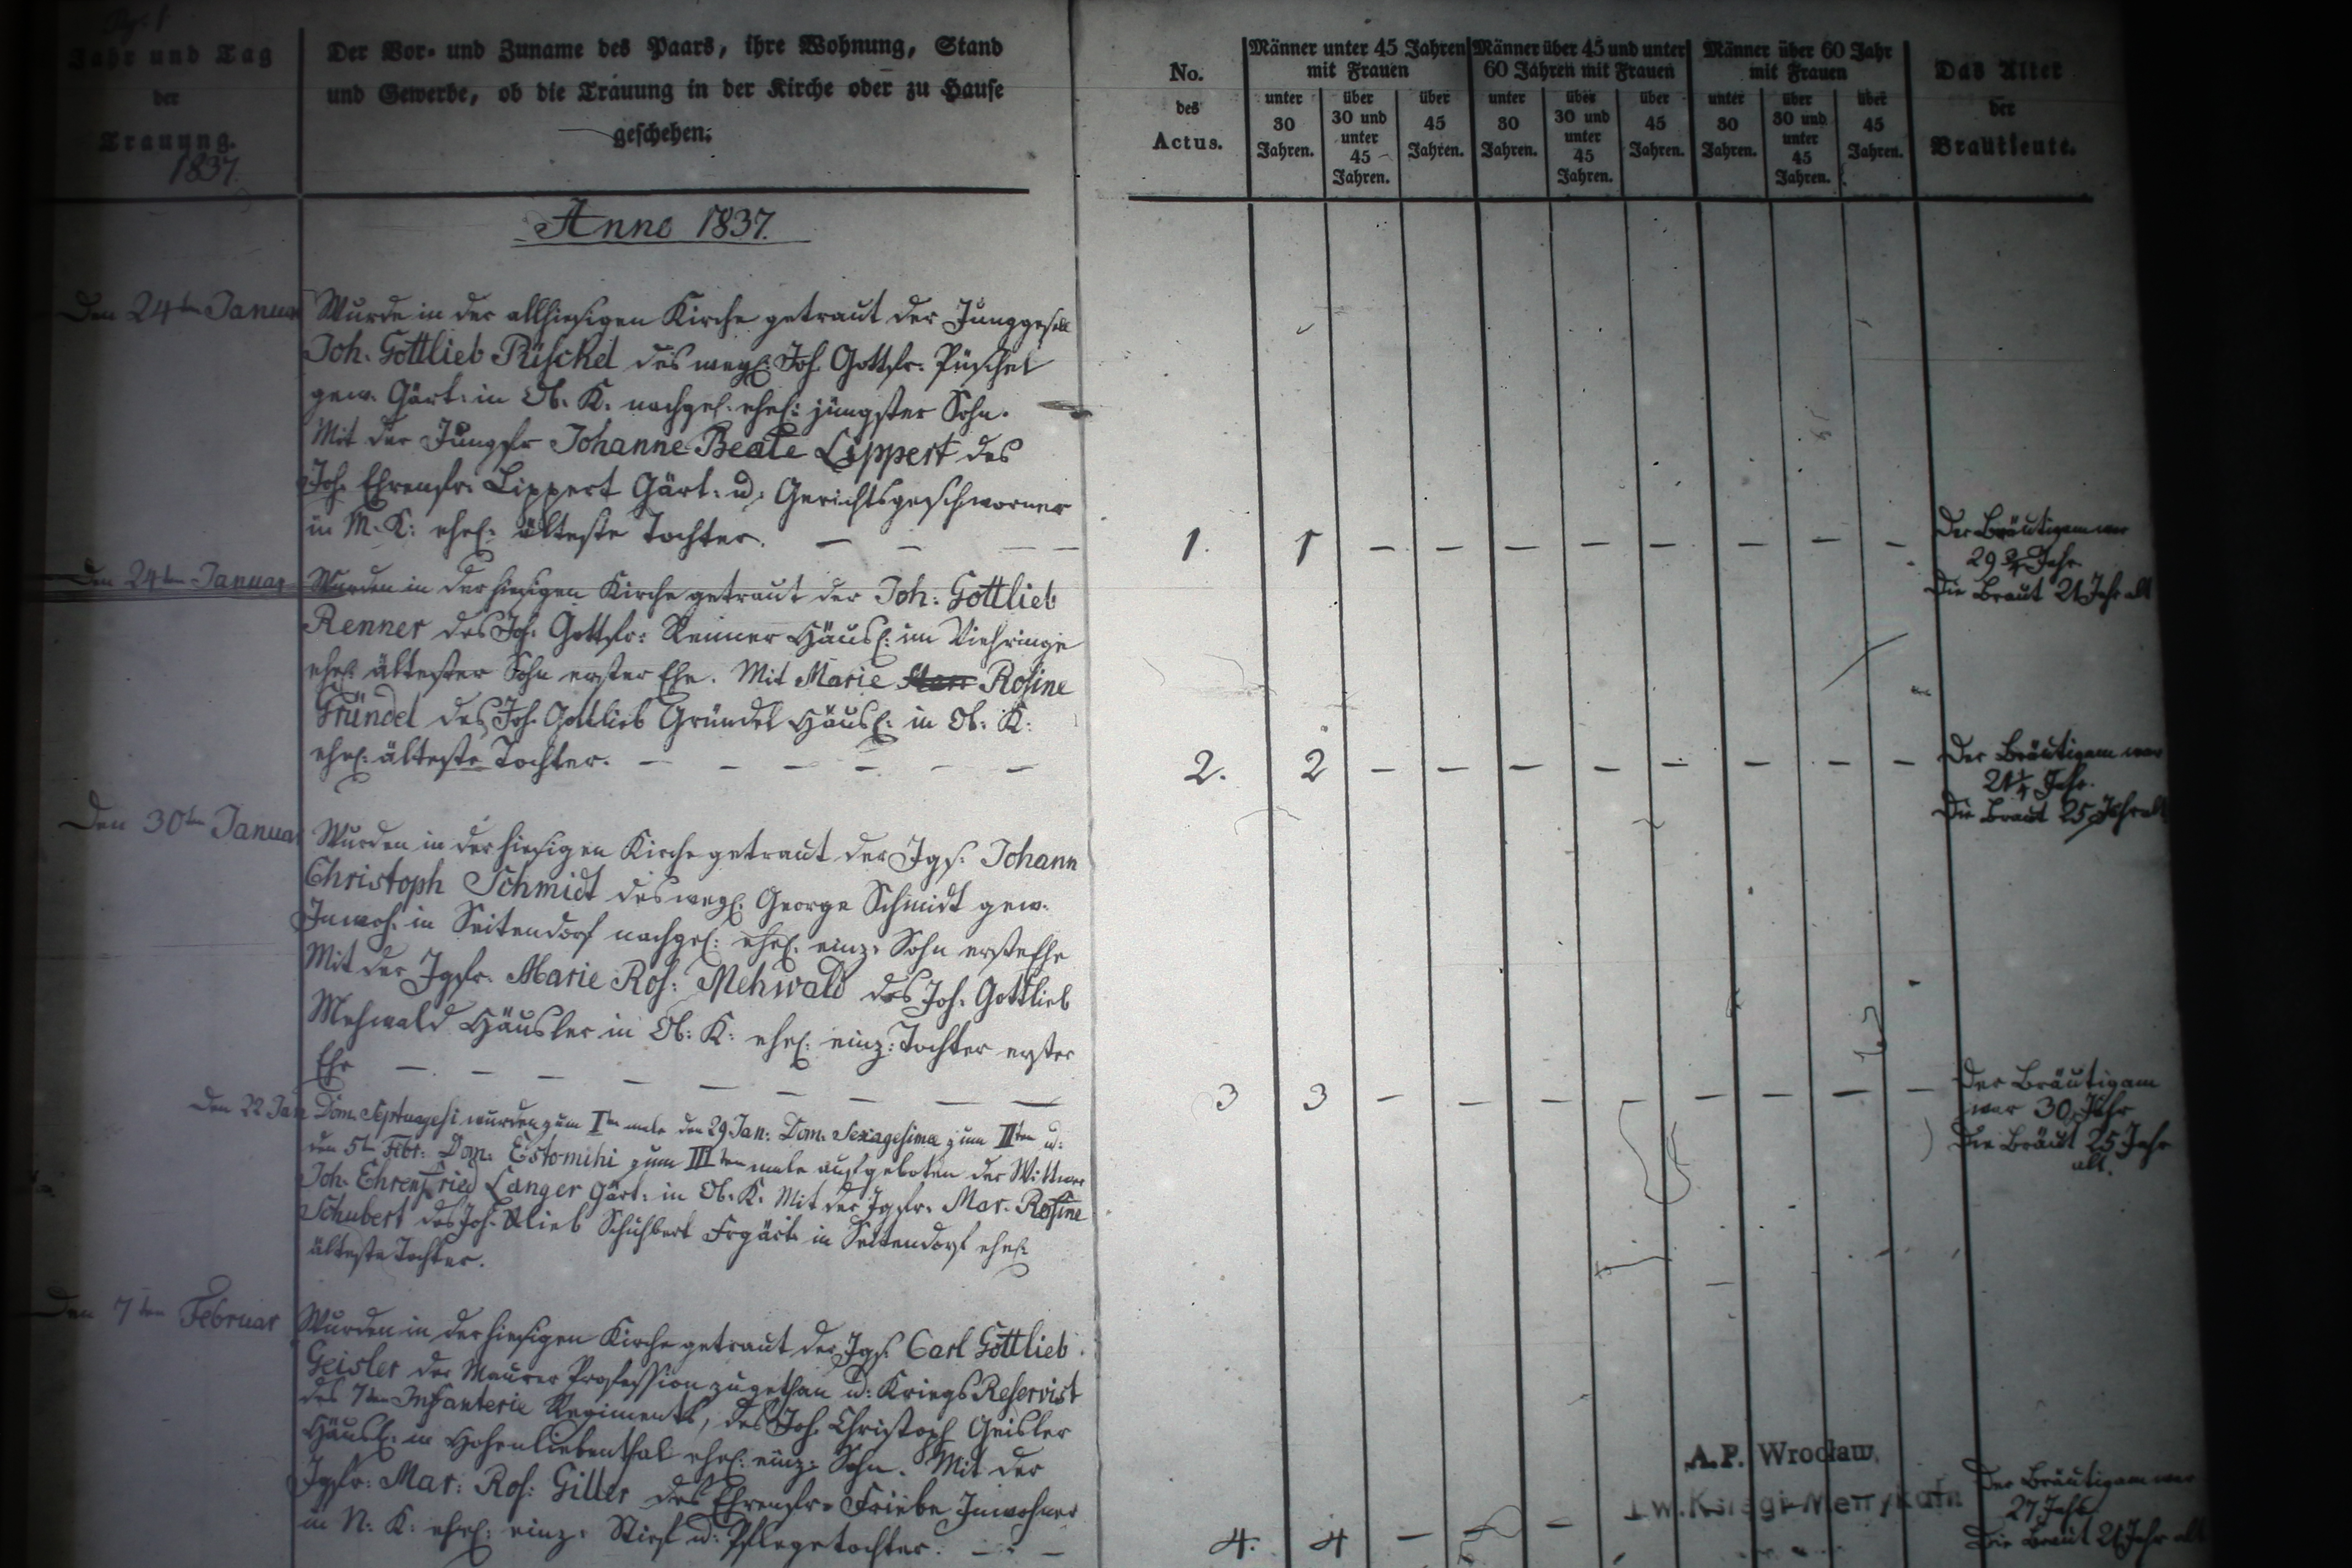 Jahr und Tag
der
Trauung.
1837.
Der Vor- und Zuname des Paars, ihre Wohnung, Stand
und Gewerbe, ob die Trauung in der Kirche oder zu Hause
geschehen:
No.
des
Actus.
Männer unter 45 Jahren
mit Frauen
unter
30
Jahren.
über
30 und
unter
45
Jahren.
über
45
Jahren.
Männer über 45 und unter
60 Jahren mit Frauen
unter
30
Jahren.
über
30 und
unter
45
Jahren.
über
45
Jahren.
Männer über 60 Jahr
mit Frauen
unter
30
Jahren.
über
30 und
unter
45
Jahren.
über
45
Jahren.
Das Alter
der
Brautleute.
Anno 1837.
Den 24ten Januar
Wurde in der allhiesigen Kirche getraut der Junggesell
Joh. Gottlieb Püschel des wegl. Joh. Gottfr. Püschel
gew. Gärt. in Ob. K. nachgel. ehel. jüngster Sohn.
Mit der Jungfr Johanne Beate Lippert des
Joh. Ehrenfr. Lippert Gärt. u. Gerichtsgeschworner
in M. K. ehel. älteste Tochter. — — — —
1. 1 — — — — — — — —
Der Bräutigam war
29 3/4 Jahr
Die Braut 21 Jahr alt
Den 24ten Januar
Wurden in der hiesigen Kirche getraut der Joh. Gottlieb
Renner des Joh. Gottfr. Renner Häusl. im Viehringe
ehel. ältester Sohn erster Ehe. Mit Marie Rosine
Gründel des Joh. Gottlieb Gründel Häusl. in Ob. K.
ehel. älteste Tochter. — — — — — —
2. 2 — — — — — — — —
Der Bräutigam war
21 1/4 Jahr.
Die Braut 25 Jahr alt
Den 30ten Januar
Wurden in der hiesigen Kirche getraut der Jgs. Johann
Christoph Schmidt des wegl. George Schmidt gew.
Inwoh. in Seitendorf nachgel. ehel. einz. Sohn erster Ehe
Mit der Jgfr. Marie Ros. Mehwald des Joh. Gottlieb
Mehwald Häusler in Ob. K. ehel. einz. Tochter erster
Ehe — — — — — — — — —
3 3 — — — — — — — —
Der Bräutigam
war 30 Jahr
Die Braut 25 Jahr
alt.
Den 22 Jan Dom. Septuagesi wurden zum Iten male den 29 Jan. Dom. Sexagesima zum IIten u.
den 5ten Febr. Dom. Estomihi zum IIIten male aufgeboten der Wittwer
Joh. Ehrenfried Langer Gärt. in Ob. K. Mit der Jgfr. Mar. Rosine
Schubert des Joh. Schuhbert Frgärt. in Seitendorf ehel.
älteste Tochter.
Den 7ten Februar
Wurden in der hiesigen Kirche getraut der Jgs. Carl Gottlieb
Geisler der Maurer Profession zugethan u. Kriegs Reservist
des 7ten Infanterie Regiments, des Joh. Christoph Geisler
Häusl. in Hohenliebenthal ehel. einz. Sohn. Mit der
Jgfr. Mar. Ros. Giller des Ehrenfr. Friebe Inwohner
in N. K. ehel. einz. Stief u. Pflegetochter. — —
4. 4 — — —
Der Bräutigam war
27 Jahr
Die Braut 21 Jahr alt
A.P. Wrocław